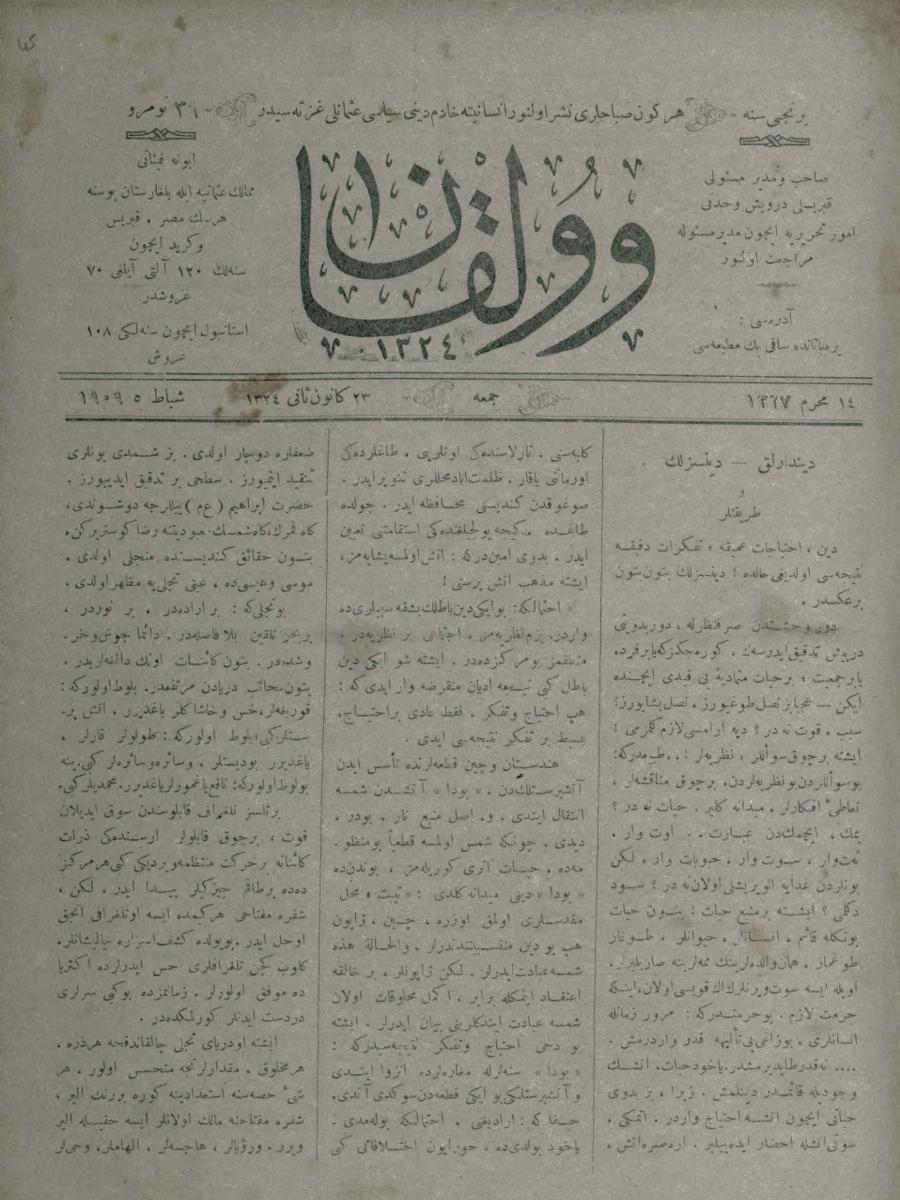 برنجی سنه
هر کون صباحلری نشر اولنور انسانیته خادم دینی سیاسی عثمانلی غزته سیدر
نومرو ٣٦
صاحب و مدیر مسئولی
قبریسلی درویش وحدتی
امور تحریریه ایچون مدیر مسئوله
مراجعت اولنور
آدره‌سی :
ساقی بك مطبعه‌سی
وولقان
١٣٢٤
ابونه فیئاتی
ممالك عثمانیه ایله بلغارستان بوسنه
هرسك مصر ، قبریس
وکرید ایچون
سنه‌لك ١٢٠ آلتی آیلغی ٧٠
غروشدر
استانبول ایچون سنه‌لکی ١٠٨
غروش
١٤ محرم ١٣٢٧
جمعه
٢٣ کانون ثانی ١٣٢٤
شباط ٥ ١٩٠٩
دیندارلق — دینسزلك
و
طریقتلر
دین ، احتیاجات عمیقه ؛ تفکرات دقیقه
نتیجه‌سی اولدیغی حالده ! دینسزلك بتون بتون
برعکسدر .
دور وحشتدن صرفنظرله ، دور بدویتی
درپیش تدقیق ایدرسه‌ك . کوره‌جکز که یا بر فرد،
یا بر جمعیت ؛ بر حیات متمادیۀ بی قیدی ایچنده
ایکن — عجبا بز نصل طوغیورز ، نصل یشایورز؟
سبب ، قوت نه در ؟ دیه آرامسی لازم کلمزمی !
ایشته برچوق سوأللر ، نظریه‌لر ! . . طبیعیدرکه:
بو سوأللردن بو نظریه‌لردن، برچوق مناقشه‌لر ،
تعاطیٔ افکارلر ، میدانه کلیر . حیات نه در ؟
یمك ، ایچمکدن عبارت . . اوت وار .
ات وار ، سوت وار ، حبوبات وار ، لکن
بونلردن غدایه الویریشلی اولان نه در ؟ سود
دکلمی ؟ ایشته بر منبع حیات ! بتون حیات
بونکله قائم . انسانلر ، حیوانلر ، طوغار
طوغماز . همان والده‌لرینك ممه‌لرینه صاریلیرلر.
اویله ایسه سوت ویرنلرك اك قویسی اولان، اینکه
حرمت لازم . بو حرمتدرکه : مرور زمانله
انسانلری ، بوزاغی‌یی تألیهه قدر واردرمش .
.... نه‌قدر طاپدیرمشدر. یاخود حیات. آتشك
وجودیله قائمدر دینلمش . زیرا ، بر بدوی
حیاتی ایچون آتشه احتیاج واردر . اتمکی .
سوتی آتشله احضار ایده‌بیلیر . آره صره آتش ،
کلبه‌سنی . تارلاسنده‌کی اوتلریی . طاغلرده‌کی
اورمانی یاقار . ظلمت‌آباد محللری تنویر ایدر.
صوغوقدن کندیسنی محافظه ایدر . چولده
طاغده . کیجه یولجیلغنده‌کی استقامتنی تعیین
ایدر . بدوی امیندرکه : آتش اولمسه یشایه‌مز،
ایشته مذهب آتش پرستی !
احتمالکه: بو ایکی دین باطلك بشقه سببلری ده
واردر. بزم نظریه‌مز . اجتماعی بر نظریه‌در .
منطقمز بو مرکزده‌در . ایشته شو ایکی دین
باطل کبی نیجه ادیان منقرضه وار ایدی که :
هپ احتیاج وتفکر . فقط عادی بر احتیاج.
بسیط بر تفکر نتیجه‌سی ایدی .
هندستان وچین قطعه‌لرنده تأسس ایدن
آتشپرستلکدن ، « بودا » آتشدن شمسه
انتقال ایتدی . و . اصل منبع نار . بودر .
دیدی . چونکه شمس اولمسه قطعیاً بو منظومه‌ده . حیات اثری کوریله‌مز . بوندن ده
« بودا » دینی میدانه کلدی : « تیبت » محل
مقدسلری اولمق اوزره ، چین ، ژاپون
هپ بو دین منتسبیندندرلر . والحالة هذه
شمسه عبادت ایدرلر . لکن ژاپونلر . بر خالقه
اعتقاد ایتمکله برابر ، اکمل مخلوقات اولان
شمسه عبادت ایتدکلرینی بیان ایدرلر . ایشته
بو دخی احتیاج وتفکر نتیجه‌سیدرکه :
« بودا » سنه‌لرله مغاره‌لرده انزوا ایتدی
و آتشپرستلکی بو ایکی قطعه‌دن سوکدی آتدی.
حیفا که : آرادیغنی . احتمالکه بوله‌مدی .
یاخود بولدی ده ، حواریون اختلافاتی کبی
ضعفلره دوچار اولدی . بز شمدی بونلری
تنقید ایتمیورز . سطحی بر تدقیق ایدییورز .
حضرت ابراهیم (ع م) ییللرجه دوشوندی،
کاه قمرك، کاه شمسك معبودیتنه رضا کوستریرکن،
بتون حقائق کندیسنده منجلی اولدی .
موسی وعیسی ده ، عینی تجلی‌یه مظهر اولدی .
بو تجلی که : بر اراده‌در ، بر نوردر ،
بر بحر تلقین بلا فاصله‌در . دائما جوش وخروشده‌در . بتون کائنات اونك دالغه‌لریدر .
بتون سحائب دریادن مرتفعدر. بلوط اولورکه :
قوربغه‌لر، خس وخاشاکلر یاغدیرر . آتش پرستلر کبی؛ بلوط اولورکه : طولولر قارلر ،
یاغدیرر بودیستلر ، وسائره وسائره‌لر کبی. ینه
بولوط اولورکه: نافع یاغمورلر یاغدیرر. محمدیلر کبی.
برتلسز تلغراف قابلوسندن سوق ایدیلان
قوت ، برچوق قابلولر آره‌سنده‌کی ذرات
کائناته بر حرکت منتظمه ویردیکی کبی هر مرکزده‌ده بر طاقم چیزکیلر پیدا ایدر . لکن ،
شفره مفتاحی هر کیمده ایسه او تلغرافی آنجق
او حل ایدر . بو یولده کشف اسراره چالیشانلر.
کلوب کچن تلغرافلری حس ایدرلرده اکثریا
ده موفق اولورلر . زمانمزده بو کبی سرلری
دردست ایدنلر کورلمکده‌در .
ایشته او دریای تجلی چالقاندقجه هر ذره ،
هر مخلوق . مقدارلرنجه متحسس اولور . هر
شی‌ٔ حصه‌سنه استعدادینه کوره بر رنك آلیر ،
شفره مفتاحنه مالك اولانلر ایسه حقیله آلیر
ویرر . ورؤیالر ، هاجسه‌لر . الهاملر، وحی‌لر